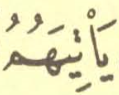 يَأْتِيَهُمُ